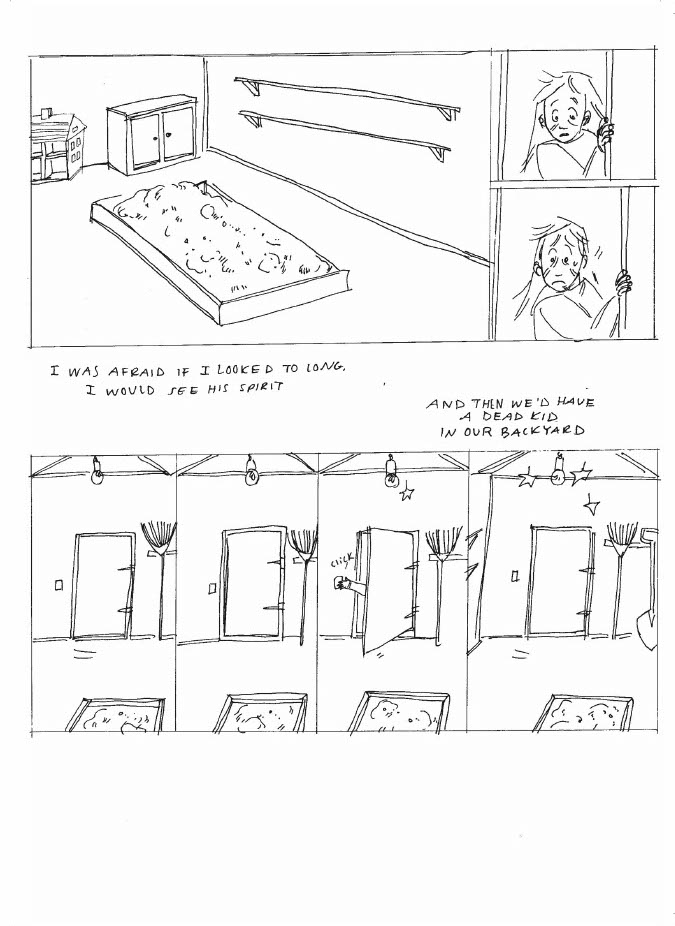 I WAS AFRAID IF I LOOKED TO LONG,
I WOULD SEE HIS SPIRIT
AND THEN WE'D HAVE
A DEAD KID
IN OUR BACKYARD
click